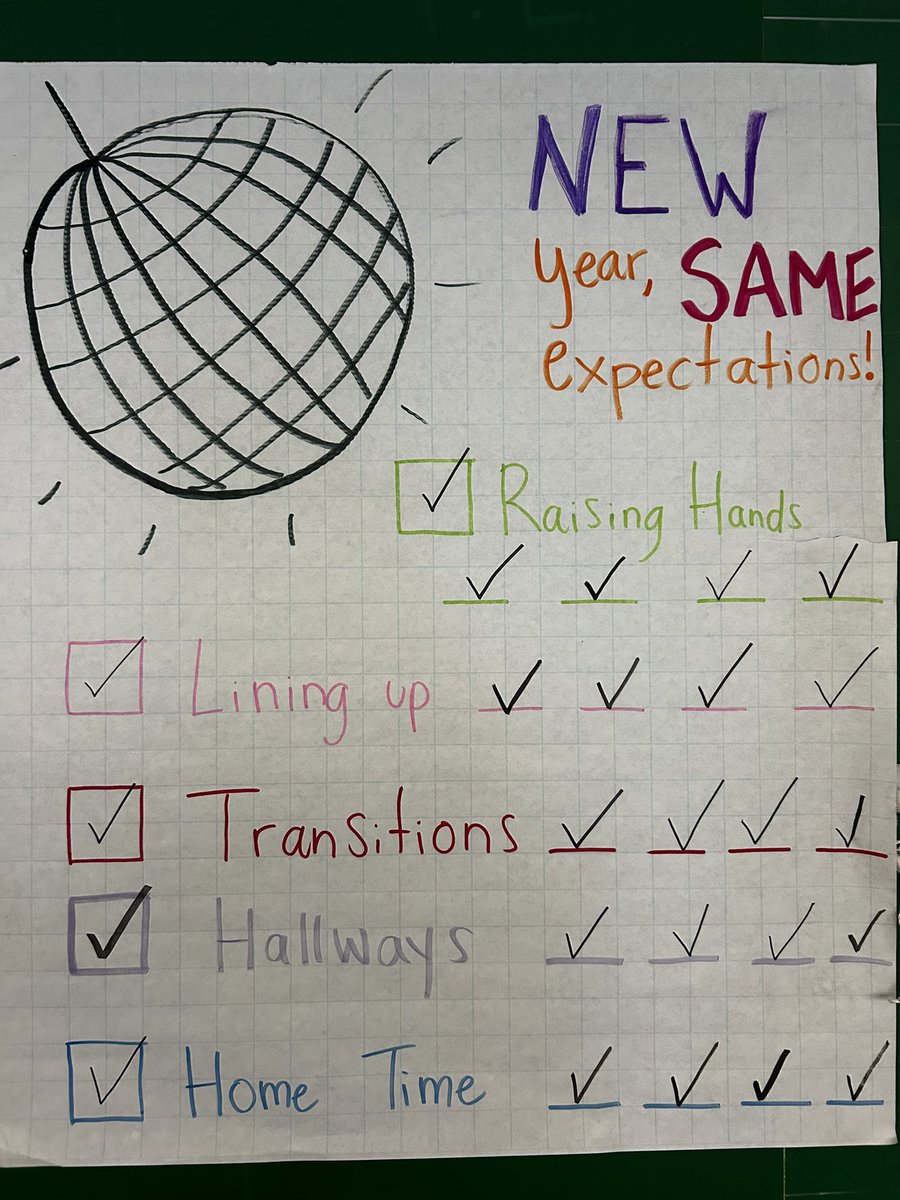 NEW
year, SAME
expectations!
☑ Raising Hands
✓ ✓ ✓ ✓
☑ Lining up ✓ ✓ ✓ ✓
☑ Transitions ✓ ✓ ✓ ✓
☑ Hallways ✓ ✓ ✓ ✓
☑ Home Time ✓ ✓ ✓ ✓